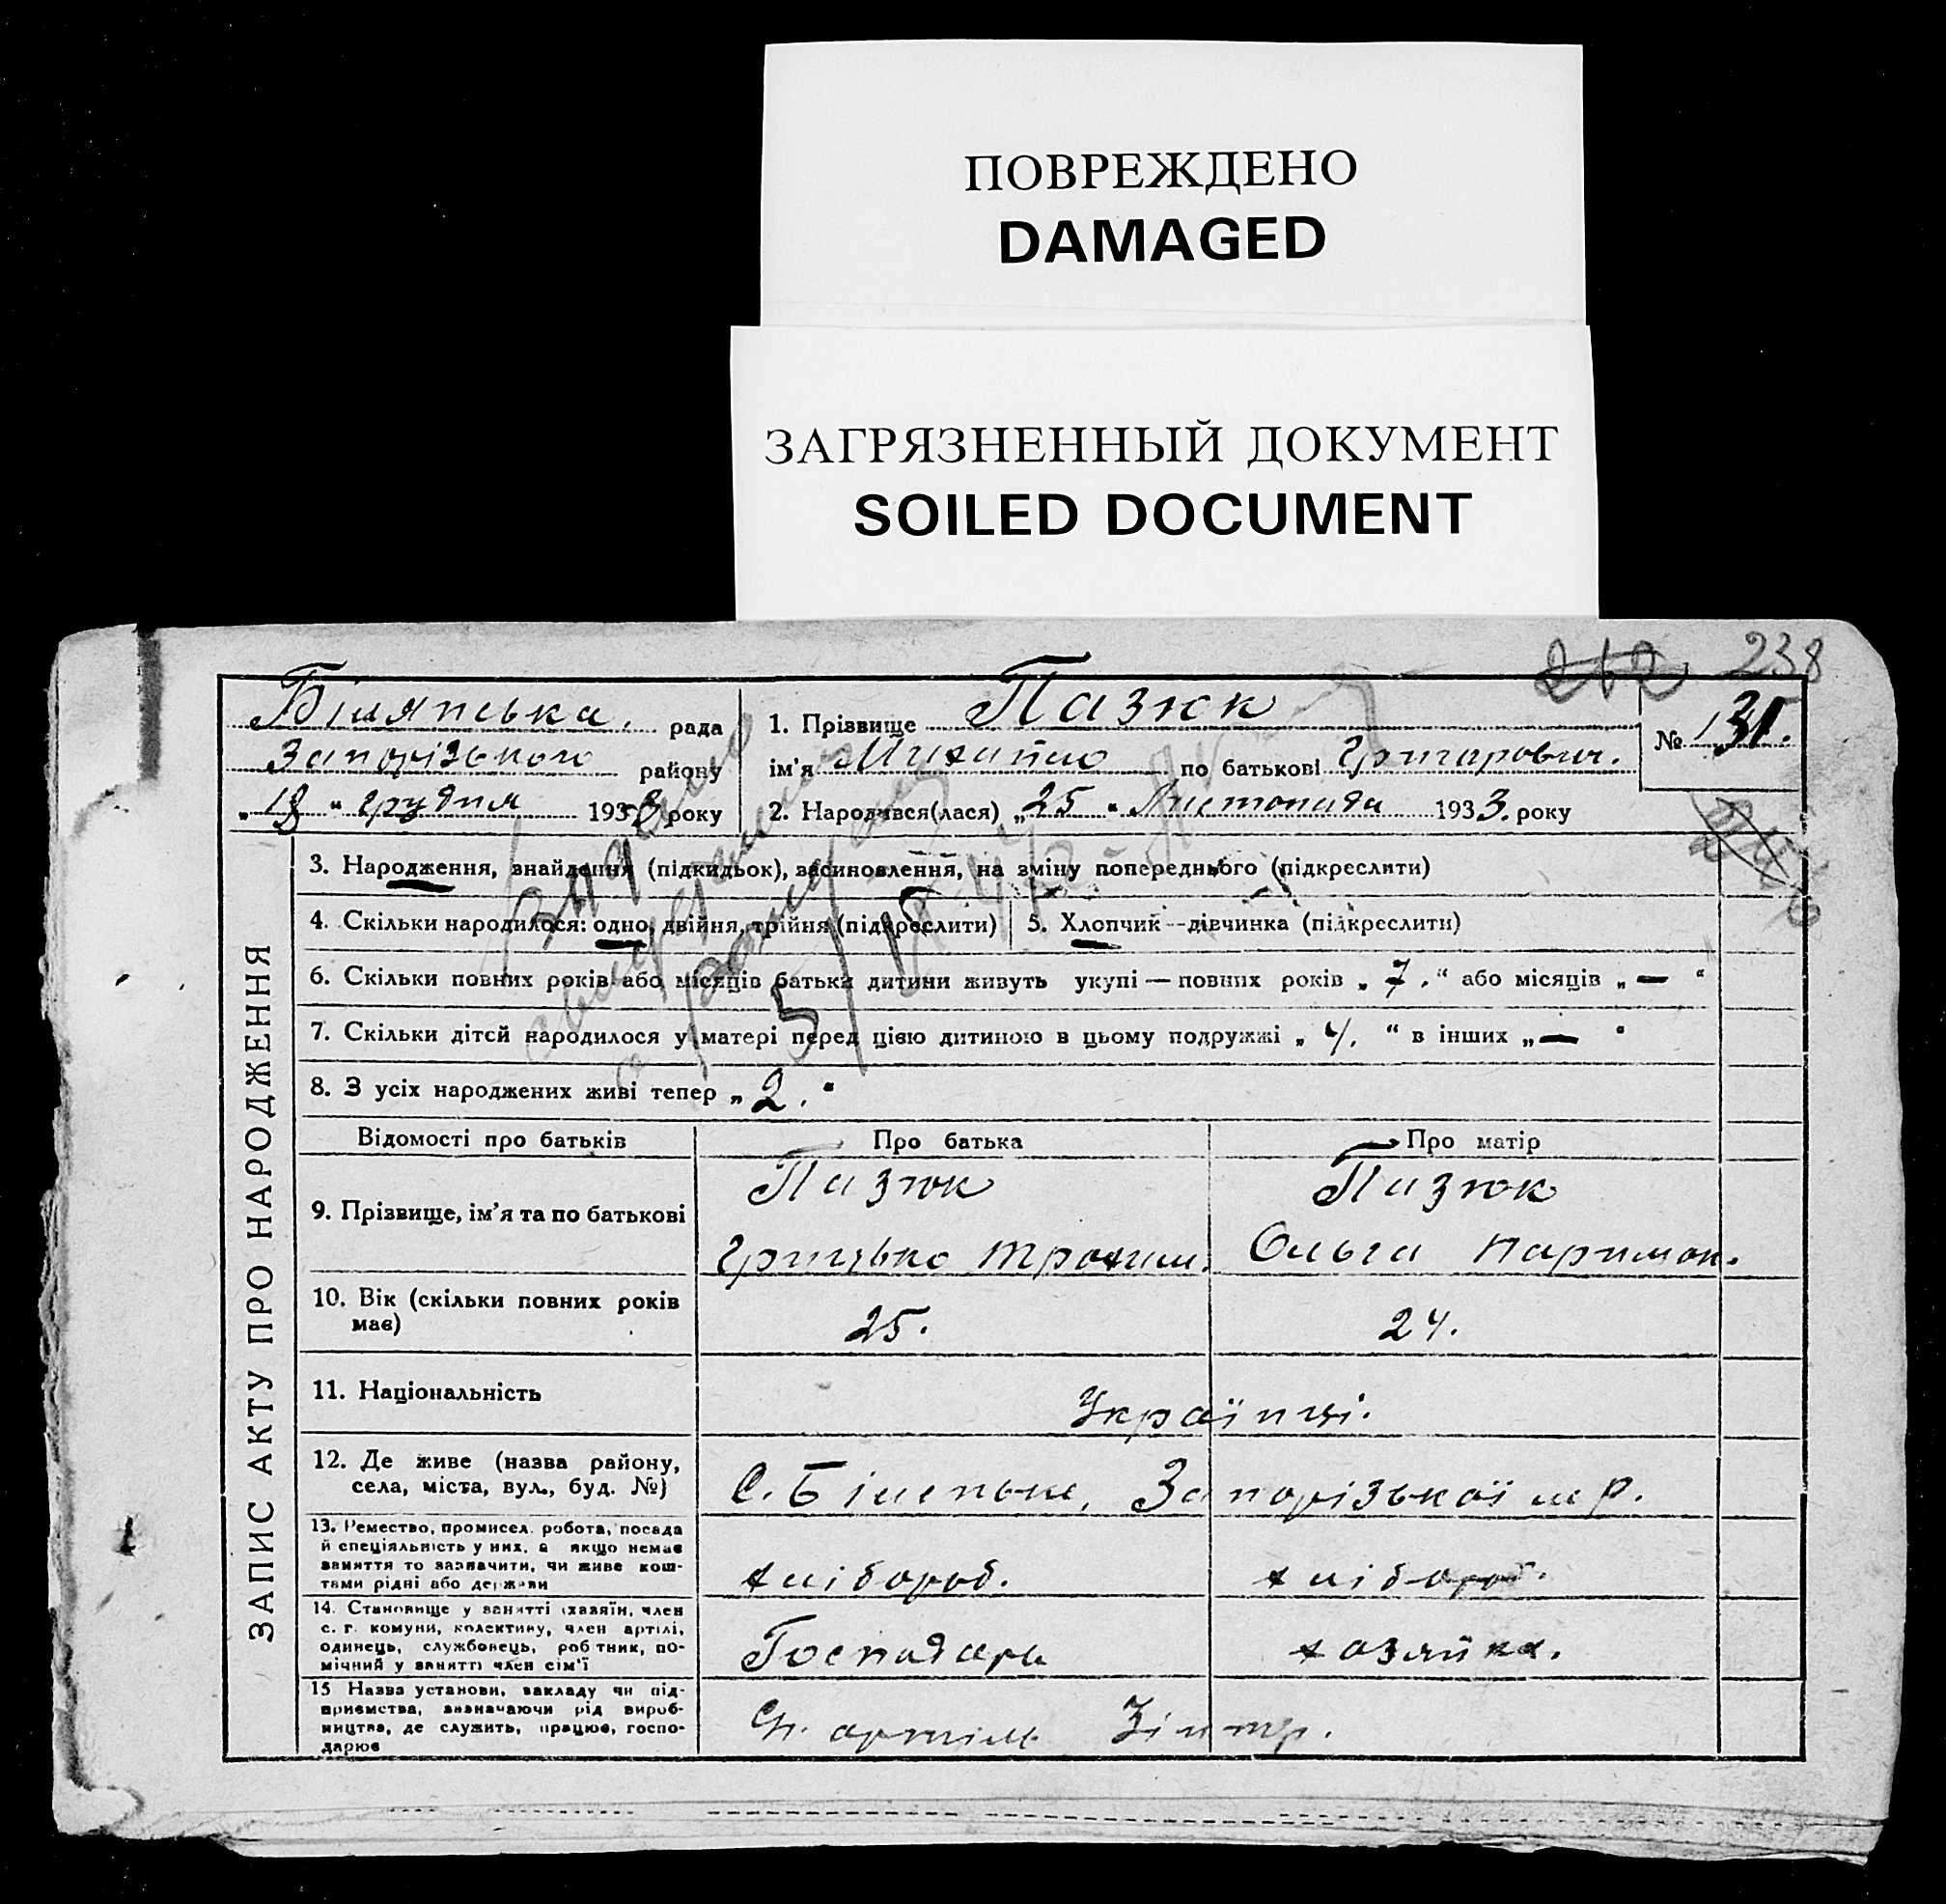 ПОВРЕЖДЕНО
DAMAGED
ЗАГРЯЗНЕННЫЙ ДОКУМЕНТ
SOILED DOCUMENT
262 238
рада
Запорізького району
„18“ грудня 1933 року
1. Прізвище Пазюк
ім'я Михайло по батькові
№ 131.
2. Народився(лася) „25“ Листопада 1933. року
ЗАПИС АКТУ ПРО НАРОДЖЕННЯ
3. Народження, знайдення (підкидьок), всиновлення, на зміну попереднього (підкреслити)
4. Скільки народилося: одно, двійня, трійня (підкреслити)
5. Хлопчик — дівчинка (підкреслити)
6. Скільки повних років або місяців батьки дитини живуть укупі — повних років „7.“ або місяців „—“
7. Скільки дітей народилося у матері перед цією дитиною в цьому подружжі „4.“ в інших „—“
8. З усіх народжених живі тепер „2.“
Відомості про батьків Про батька Про матір
9. Прізвище, ім'я та по батькові
Пазюк Пазюк
Грицько Трохим. Ольга
10. Вік (скільки повних років
має)
25. 24.
11. Національність
Українці.
12. Де живе (назва району,
села, міста, вул., буд. №)
С. Біленьке, Запорізької м р.
13. Ремество, промисел. робота, посада
й спеціяльність у них, а якщо немає
заняття то зазначити, чи живе кош-
тами рідні або держави
хлібороб. хлібороб.
14. Становище у занятті (хазяїн, член
с. г. комуни, колективу, член артілі,
одинець, службовець, робітник, по-
мічний у занятті член сім'ї
Господарь хозяйка.
15 Назва установи, закладу чи під-
приємства, визначаючи рід вироб-
ництва, де служить, працює, госпо-
дарює
артіль